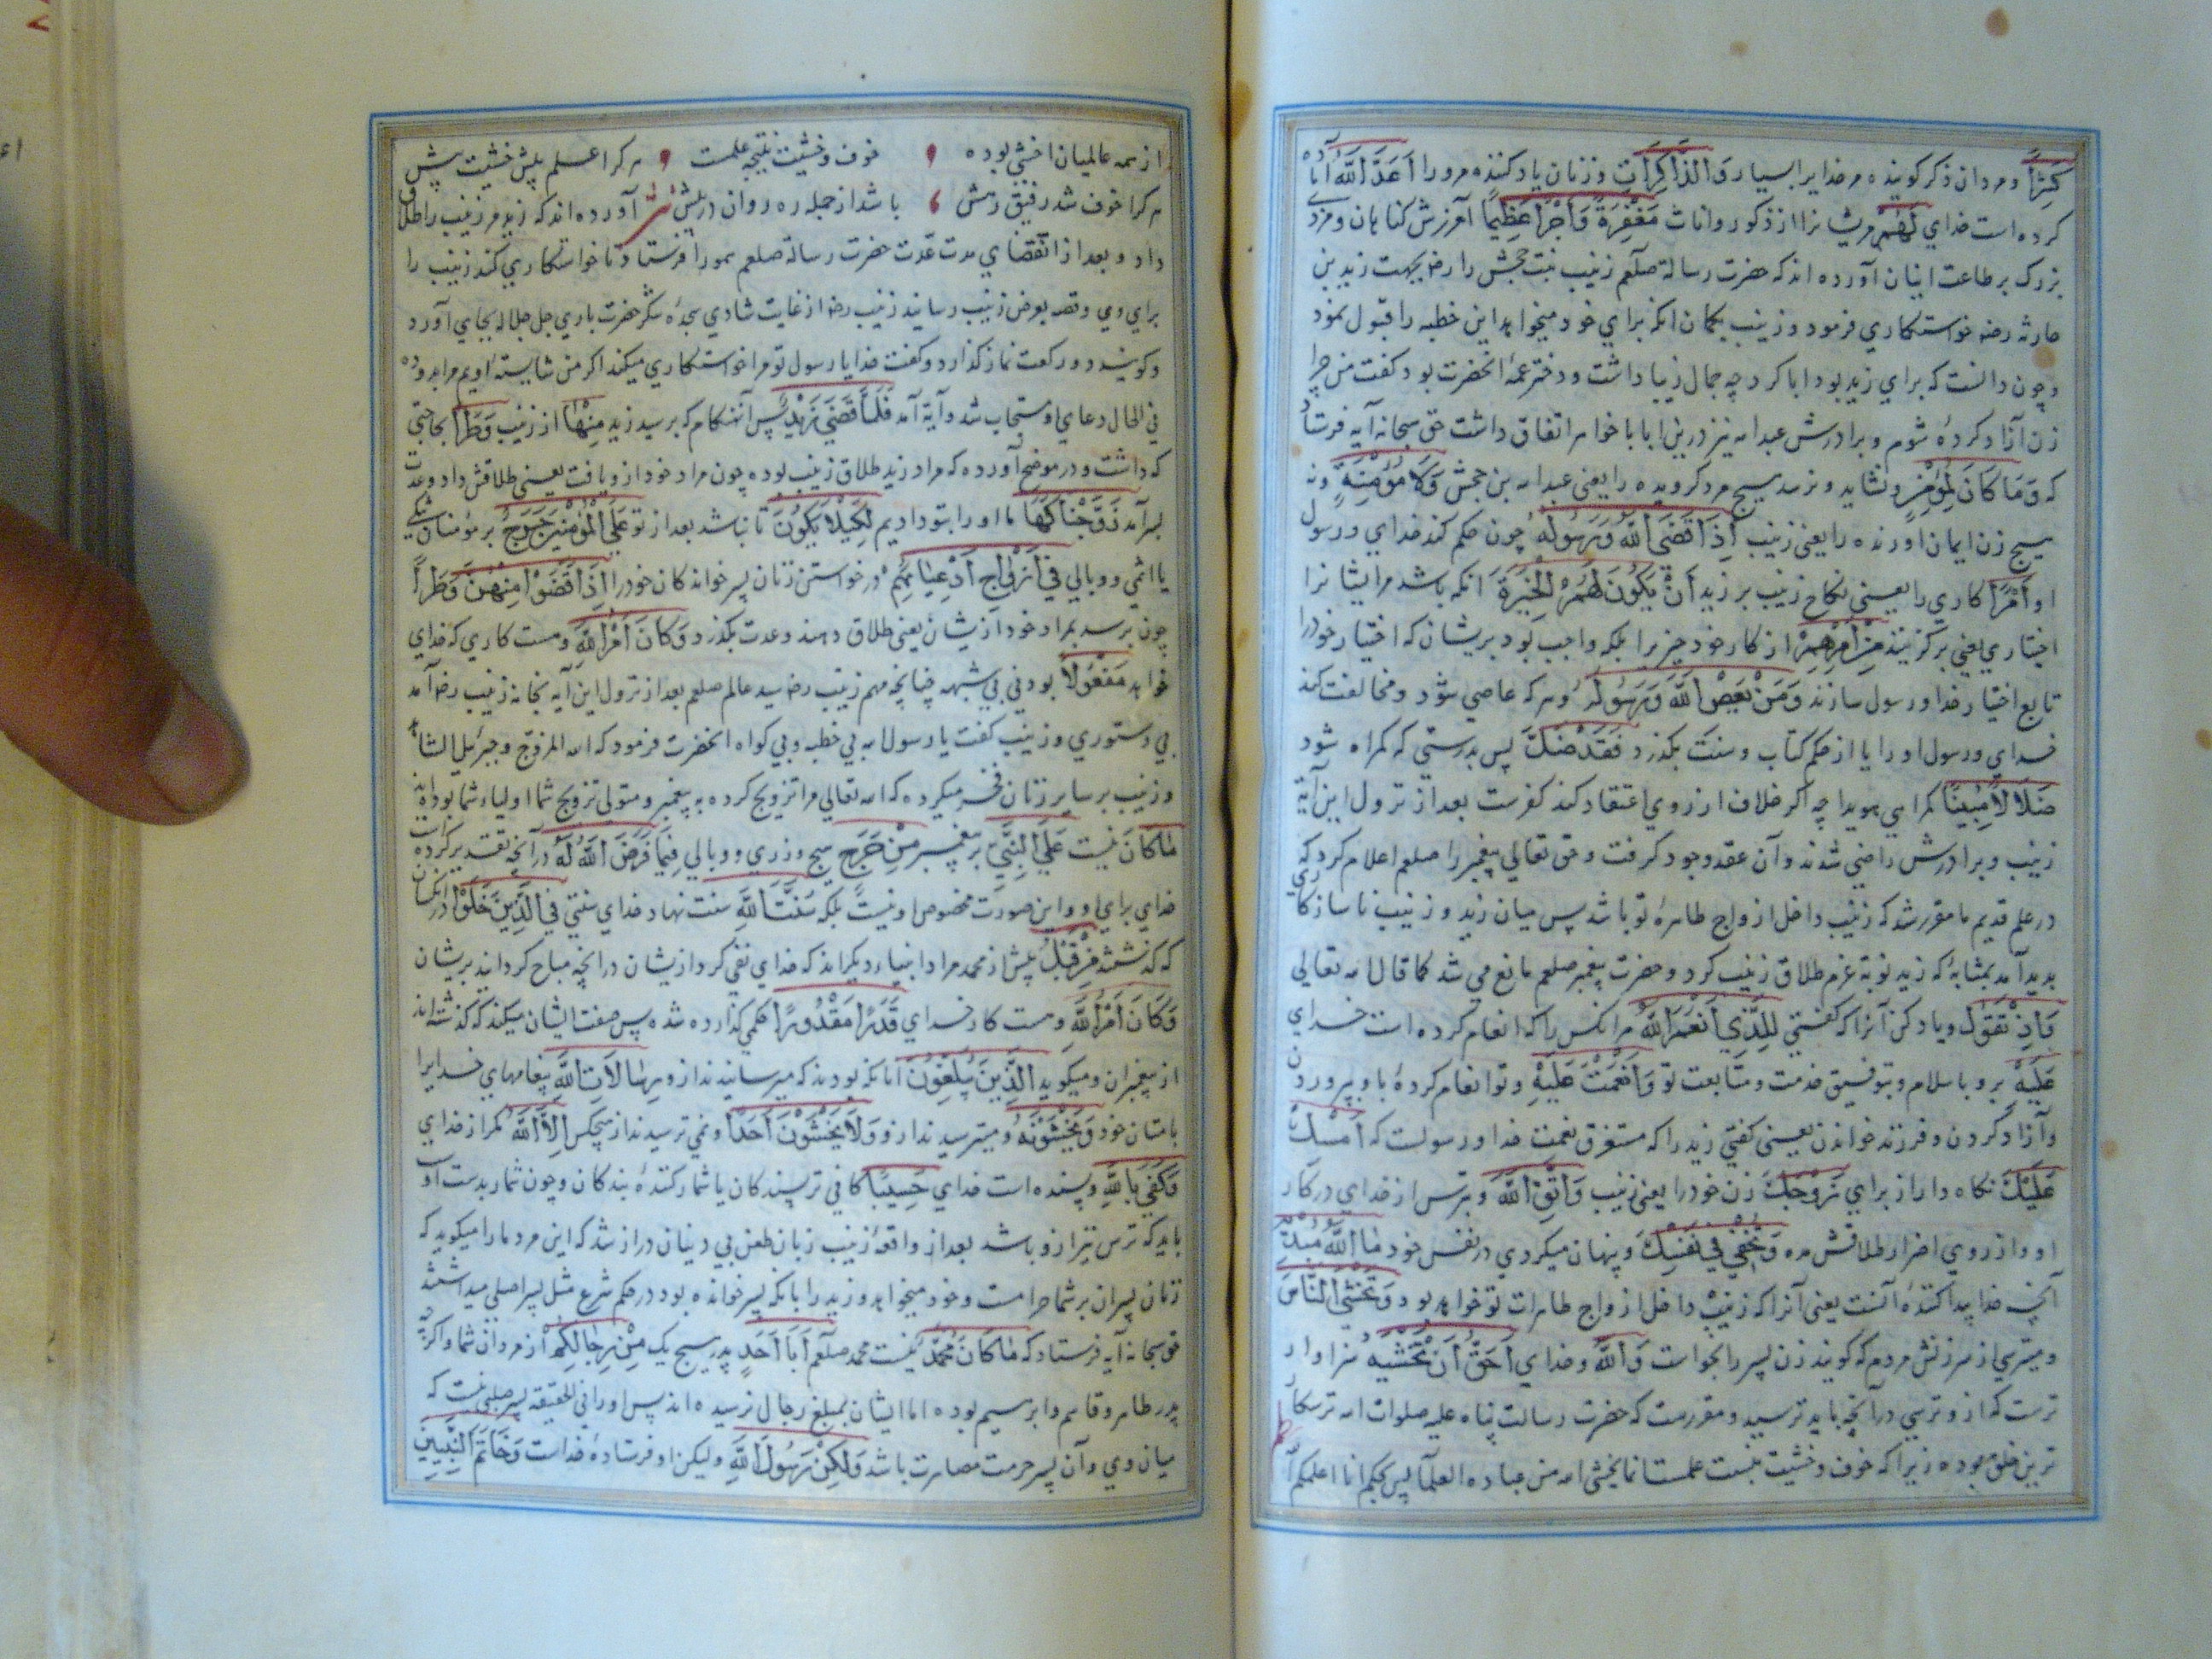 كثيرا ومردان ذکر کوینده مر خدایرا بسیار وَالذَّاكِرَاتِ وزنان یاد کننده مر ورا اَعَدَّ اللهُ آماده
کرده است خدای لَهُمْ مر ایشانرا از ذکور واناث مَغْفِرَةً وَأَجْرًا عَظِيمًا آمرزش کناهان ومزدی
بزرک بر طاعت ایشان آورده اند که حضرت رسالة صلعم زینب بنت جحش را رضه بجهت زید بن
حارثه رضه خواستکاری فرمود وزینب بکمان انکه برای خود میخواهد این خطبه را قبول نمود
وچون دانست که برای زید بود ابا کرد چه جمال زیبا داشت ودختر عمهٔ انحضرت بود کفت من چرا
زن آزاد کردهٔ شوم وبرادرش عبدالله نیز درین ابا با خواهر اتفاق داشت حق سبحانه آیه فرستاد
که وَمَا كَانَ لِمُؤْمِنٍ ونشاید ونرسد هیچ مرد کرویده را یعنی عبدالله بن جحش وَلَا مُؤْمِنَةٍ ونه
هیچ زن ایمان اورنده را یعنی زینب اِذَا قَضَى اللهُ وَرَسُولُهُ چون حکم کند خدای ورسول
او اَمْرًا کاری را یعنی نکاح زینب بر زید اَنْ يَكُونَ لَهُمُ الْخِيَرَةُ انکه باشد مر ایشانرا
اختیاری یعنی برکزینند مِنْ اَمْرِهِمْ از کار خود چیزیرا بلکه واجب بود بریشان که اختیار خودرا
تابع اختیار خدا ورسول سازند وَمَنْ يَعْصِ اللهَ وَرَسُولَهُ وهرکه عاصی شود ومخالفت کند
خدای ورسول اورا یا از حکم کتاب وسنت بکذرد فَقَدْ ضَلَّ پس بدرستی که کمراه شود
ضَلَالًا مُبِينًا کمراهی هویدا چه اکر خلاف از روی اعتقاد کند کفرست بعد از نزول این آیة
زینب وبرادرش راضی شدند وآن عقد وجود کرفت وحق تعالی پیغمبر را صلعم اعلام کرد که
در علم قدیم ما مقرر شد که زینب داخل ازواج طاهرهٔ تو باشد پس میان زید وزینب ناسازکاری
پدید آمد بمثابهٔ که زید نوبة عزم طلاق زینب کرد وحضرت پیغمبر صلعم مانع می شد کما قال الله تعالی
وَاِذْ تَقُولُ ویاد کن آنرا که کفتی لِلَّذِي اَنْعَمَ اللهُ مر انکس را که انعام کرده است خدای
عَلَيْهِ برو باسلام وبتوفیق خدمت ومتابعت تو وَاَنْعَمْتَ عَلَيْهِ وتو انعام کردهٔ باو بپروردن
وآزاد کردن وفرزند خواندن یعنی کفتی زید را که مستغرق نعمت خدا ورسولست که اَمْسِكْ
عَلَيْكَ نکاه دار از برای زَوْجَكَ زن خودرا یعنی زینب وَاتَّقِ اللهَ وبترس از خدای در کار
او واز روی اضرار طلاقش مده وَتُخْفِي فِي نَفْسِكَ وپنهان میکردی در نفس خود مَا اللهُ مُبْدِيهِ
آنچه خدا پیدا کنندهٔ آنست یعنی آنرا که زینب داخل ازواج طاهرات تو خواهد بود وَتَخْشَى النَّاسَ
ومیترسی از سرزنش مردم که کویند زن پسر را بخواست وَاللهُ وخدای اَحَقُّ اَنْ تَخْشَاهُ سزاوار
ترست که ازو ترسی در آنچه باید ترسید ومقررست که حضرت رسالت پناه علیه صلوات الله ترسکار
ترین خلق بوده زیرا که خوف وخشیت نتیجهٔ علمست انما یخشی الله من عباده العلما پس بحکم انا اعلمکم
از همه عالمیان اخشی بوده خوف وخشیت نتیجه علمست هر کرا علم بیش خشیت بیش
هر کرا خوف شد رفیق رهش باشد از جمله ره روان در پیش آورده اند که زید مر زینب را طلاق
داد وبعد از انقضای مدت عدت حضرت رسالة صلعم هم ورا فرستاد تا خواستکاری کند زینب را
برای وی وقصه بعرض زینب رسانید زینب رضه از غایت شادی سجدهٔ شکر حضرت باری جل جلاله بجای آورد
وکویند دو رکعت نماز کذارد وکفت خدایا رسول تو مرا خواستکاری میکند اکر من شایستهٔ اویم مرا بدو ده
فی الحال دعای او مستجاب شد وآیة آمد فَلَمَّا قَضَى زَيْدٌ پس آنهنکام که برسید زید مِنْهَا از زینب وَطَرًا بحاجتی
که داشت ودر موضح آورده که مراد زید طلاق زینب بوده چون مراد خود ازو یافت یعنی طلاقش داد وعدت
بسر آمد زَوَّجْنَاكَهَا ما اورا بتو دادیم لِكَيْلَا يَكُونَ تا نباشد بعد از تو عَلَى الْمُؤْمِنِينَ حَرَجٌ بر مؤمنان تنکی
یا اثمی ووبالی فِي اَزْوَاجِ اَدْعِيَائِهِمْ در خواستن زنان پسر خواندکان خودرا اِذَا قَضَوْا مِنْهُنَّ وَطَرًا
چون برسد بمراد خود ازیشان یعنی طلاق دهند وعدت بکذرد وَكَانَ اَمْرُ اللهِ وهست کاری که خدای
خواهد مَفْعُولًا بودنی بی شبهه چنانچه مهم زینب رضه سید عالم صلعم بعد از نزول این آیه بخانهٔ زینب رضه آمد
بی دستوری وزینب کفت یا رسول الله بی خطبه وبی کواه انحضرت فرمود که الله المزوج وجبرئیل الشاهد
وزینب بر سایر زنان فخر میکرده که الله تعالی مرا تزویج کرده به پیغمبر ومتولی تزویج شما اولیاء شما بوده اند
مَا كَانَ نیست عَلَى النَّبِيِّ بر پیغمبر مِنْ حَرَجٍ هیچ وزری ووبالی فِيمَا فَرَضَ اللهُ لَهُ در آنچه تقدیر کرده است
خدای برای او واین صورت مخصوص او نیست بلکه سُنَّتَ اللهِ سنت نهاد خدای سنتی فِي الَّذِينَ خَلَوْا در آنکسان
که کذشتند مِنْ قَبْلُ پیش از محمد مراد انبیاء دیکراند که خدای نفی کرد ازیشان در انچه مباح کردانید بریشان
وَكَانَ اَمْرُ اللهِ وهست کار خدای قَدَرًا مَقْدُورًا حکمی کذارده شده پس صفت ایشان میکند که کذشته اند
از پیغمبران ومیکوید الَّذِينَ يُبَلِّغُونَ آنانکه بودند که میرسانیدند ازو رِسَالَاتِ اللهِ پیغامهای خدایرا
بامتان خود وَيَخْشَوْنَهُ ومیترسیدند ازو وَلَا يَخْشَوْنَ اَحَدًا ونمی ترسیدند از هیچکس اِلَّا اللهَ مکر از خدای
وَكَفَى بِاللهِ وپسنده است خدای حَسِيبًا کافی ترسندکان یا شمار کنندهٔ بندکان وچون شمار بدست او
باید که ترس نیز ازو باشد بعد از واقعهٔ زینب زبان طعن بی دینان دراز شد که این مرد مارا میکوید که
زنان پسران بر شما حرامست وخود میخواهد وزید را بانکه پسر خوانده بود در حکم شرع مثل پسر اصلی میداشتند
حق سبحانه آیه فرستاد که مَا كَانَ مُحَمَّدٌ نیست محمد صلعم اَبَا اَحَدٍ پدر هیچ یک مِنْ رِجَالِكُمْ از مردان شما واکرچه
پدر طاهر وقاسم وابراهیم بوده اما ایشان بمبلغ رجال نرسیده اند پس اورا فی الحقیقه پسر صلبی نیست که
میان وی وآن پسر حرمت مصاهرت باشد وَلَكِنْ رَسُولَ اللهِ ولیکن او فرستادهٔ خداست وَخَاتَمَ النَّبِيِّينَ